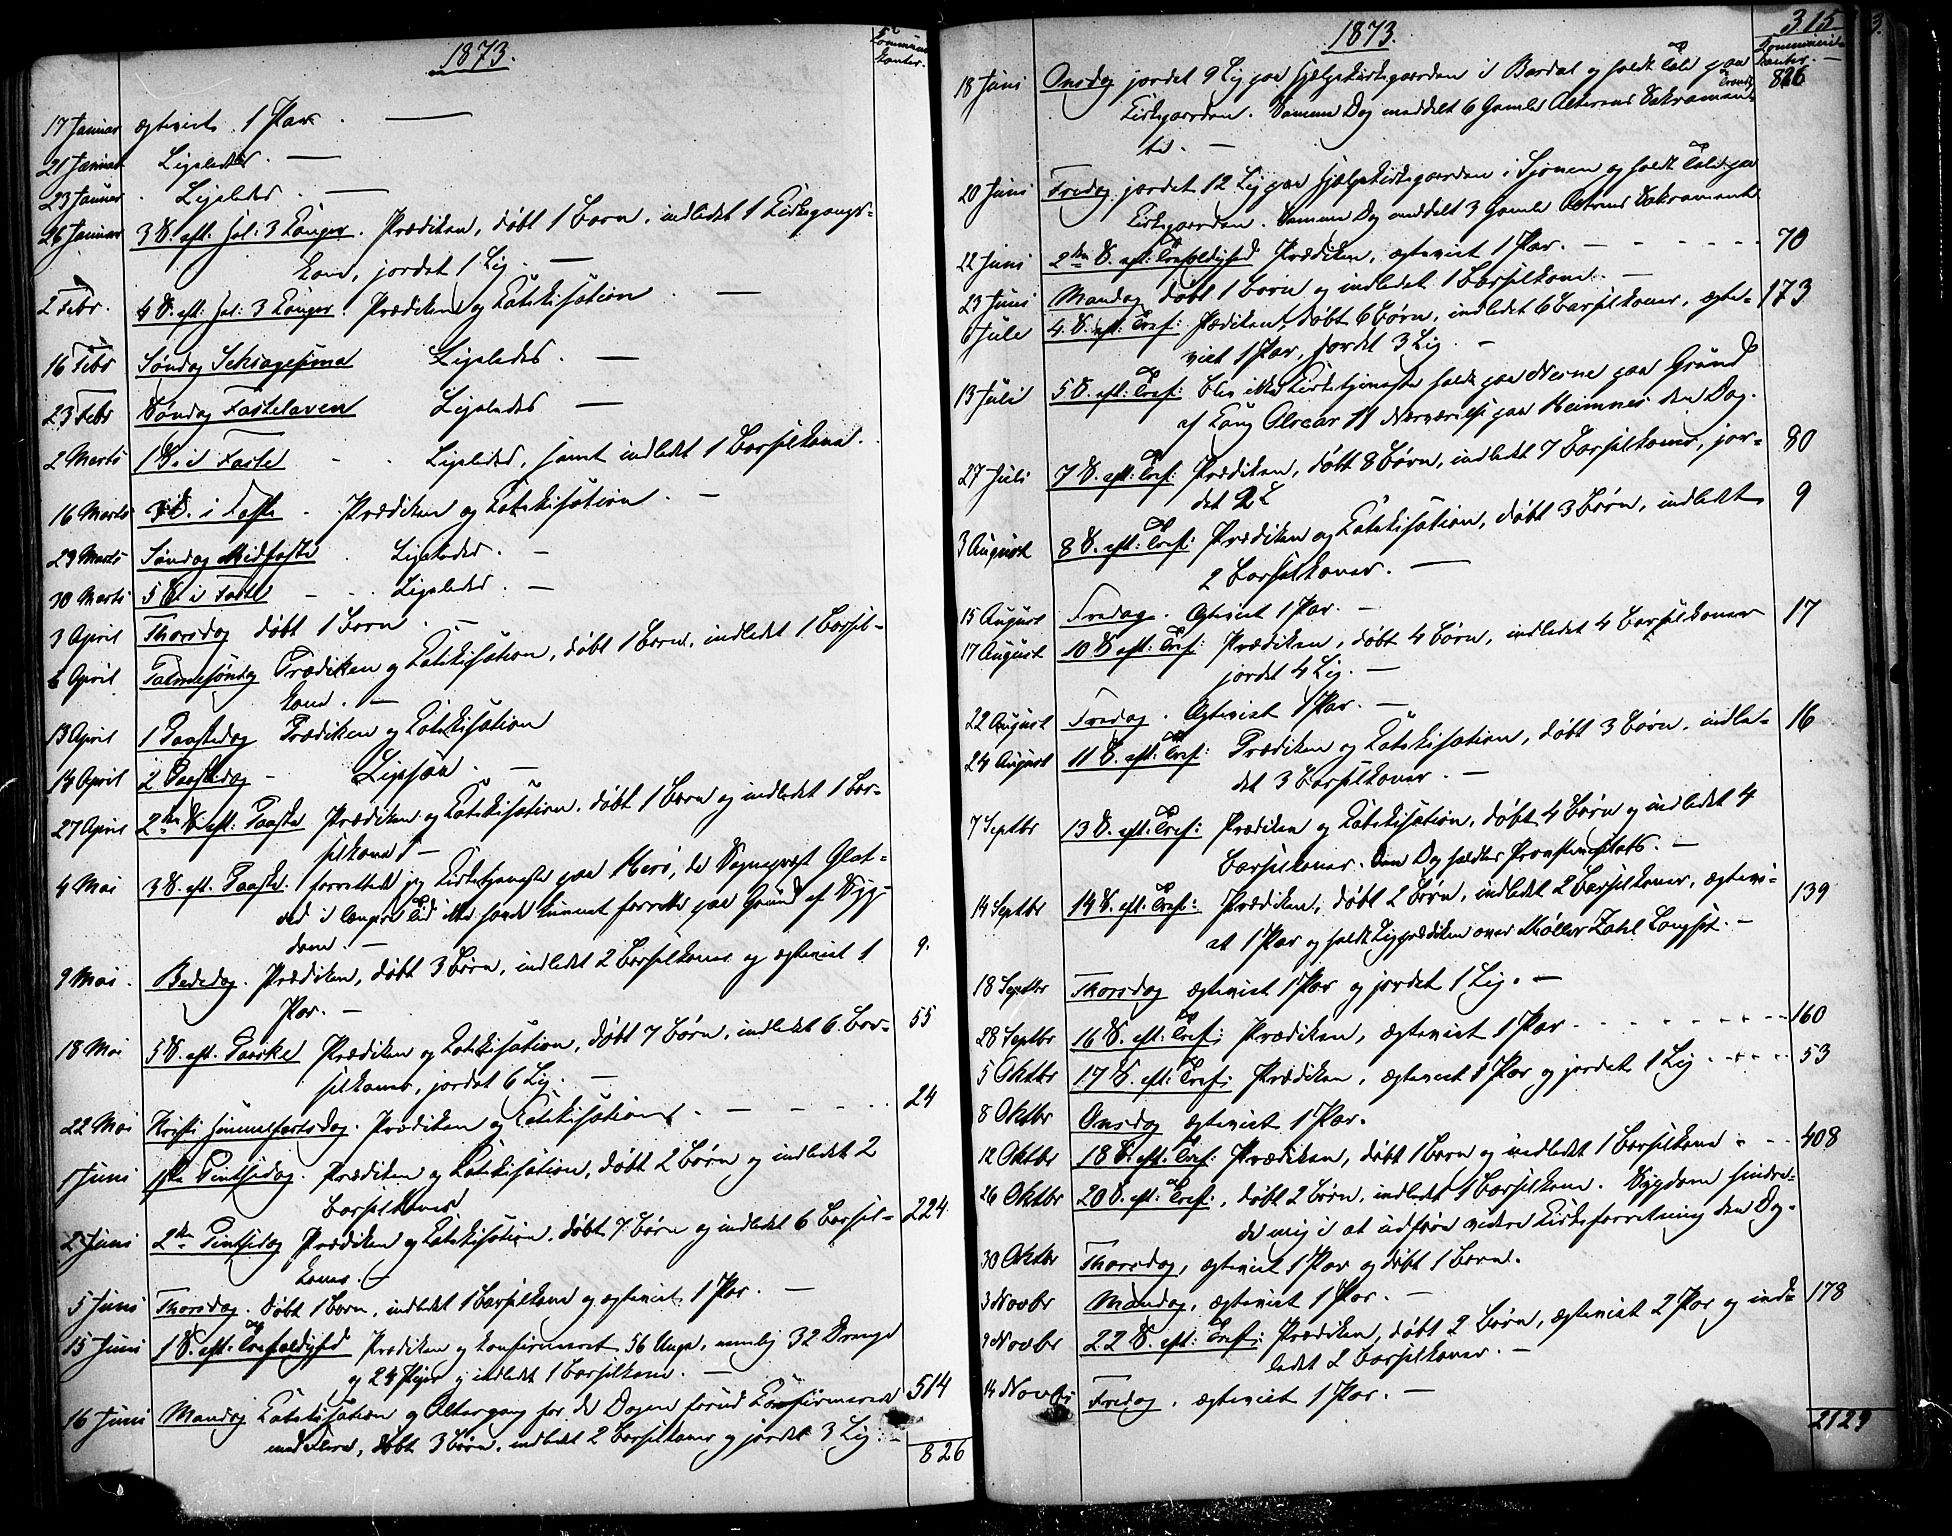 1873.
Kommuni-
kanter.
17 Januar ægteviet 1 Par. —
21 Januar Ligeledes. —
23 Januar Ligeledes. —
26 Januar 3 S. eft. Hel: 3 Konger. Prædiken, døbt 1 Barn, indledet 1 Kirkegangs-
kone, jordet 1 Lig. —
2 Febr. 4 S. eft. Hel: 3 Konger. Prædiken og Katekisation. —
16 Febr Søndag Sexagesima Ligeledes. —
23 Febr Søndag Fastelaven Ligeledes —
2 Marts 1 S. i Faste - - Ligeledes, samt indledet 1 Barselkone.
16 Marts 3 S. i Faste. Prædiken og Katekisation. —
23 Marts Søndag Midfaste. Ligeledes. —
30 Marts 5 S. i Faste - - Ligeledes. —
3 April Thorsdag døbt 1 Barn. —
6 April Palmesøndag Prædiken og Katekisation, døbt 1 Barn, indledet 1 Barsel-
kone. —
13 April 1 Paaskedag Prædiken og Katekisation
14 April 2 Paaskedag - Ligesaa. —
27 April 2den S. eft: Paaske Prædiken og Katekisation, døbt 1 Barn og indledet 1 Bar-
selkone. —
4 Mai 3 S. eft. Paaske: forrettede jeg Kirketjeneste paa Herø, da Sognepræst
i længere Tid ikke havde kunnet forrette paa Grund af Syg-
dom. —
9 Mai. Bededag. Prædiken, døbt 3 Børn, indledet 2 Barselkoner og ægteviet 1 9.
Par. —
18 Mai 5 S. eft. Paaske Prædiken og Katekisation, døbt 7 Børn, indledet 6 Bar- 55
selkoner, jordet 6 Lig. —
22 Mai Kristi Himmelfartsdag. Prædiken og Katekisation. — - - - 24
1 Juni 1ste Pintsedag. Prædiken og Katekisation, døbt 2 Børn og indledet 2
Barselkoner
2 Juni 2den Pintsedag Prædiken og Katekisation, døbt 7 Børn og indledet 6 Barsel- 224
koner. —
5 Juni Thorsdag. døbt 1 Barn, indledet 1 Barselkone og ægteviet 1 Par. —
15 Juni 1 S. eft: Trefoldighed Prædiken og konfirmeret 56 Unge, nemlig 32 Drenge
og 24 Piger og indledet 1 Barselkone. —
16 Juni Mandag Katekisation og Altergang for de Dagen forud Konfirmerede 514
med Flere, døbt 3 Børn, indledet 2 Barselkoner og jordet 3 Lig. —
826
1873.
315
Kommuni-
kanter.
18 Juni Onsdag jordet 9 Lig paa Hjælpekirkegaarden i Bardal og holdt Tale paa 826
Kirkegaarden. Samme Dag meddelt 6 Gamle Alterens Sakramen-
te. —
20 Juni Fredag jordet 12 Lig paa Hjælpekirkegaarden i Sjonen og holdt Tale paa
Kirkegaarden. Samme Dag meddelt 3 Gamle Alterens Sakramente
22 Juni 2den S. eft: Trefoldighed Prædiken, ægteviet 1 Par. — - - - 70
23 Juni Mandag døbt 1 Barn og indledet 1 Barselkone. —
6 Juli 4 S. eft: Tref: Prædiken, døbt 6 Børn, indledet 6 Barselkoner, ægte- 173
viet 1 Par, jordet 3 Lig. —
13 Juli 5 S. eft: Tref: blev ikke Kirketjeneste holdt paa Nesne paa Grund
af Kong Oscar II Nærværelse paa Hemnes den Dag.
27 Juli 7 S. eft: Tref: Prædiken, døbt 8 Børn, indledet 7 Barselkoner, jor- 80
det 2 L
3 August 8 S. eft: Tref: Prædiken og Katekisation, døbt 3 Børn, indledet 9
2 Barselkoner. —
15 August Fredag. Ægteviet 1 Par. —
17 August 10 S. eft: Tref: Prædiken, døbt 4 Børn, indledet 4 Barselkoner 17
jordet 4 Lig. —
22 August Fredag. Ægteviet 1 Par. —
24 August 11 S. eft: Tref: Prædiken og Katekisation, døbt 3 Børn, indle- 16
det 3 Barselkoner. —
7 Septbr 13 S. eft: Tref: Prædiken og Katekisation, døbt 4 Børn og indledet 4
Barselkoner. Den Dag holdtes Provstevisitats. —
14 Septbr 14 S. eft: Tref: Prædiken, døbt 2 Børn, indledet 2 Barselkoner, ægtevi- 139
et 1 Par og holdt Ligprædiken over Møller Zahl Langset. —
18 Septbr Thorsdag ægteviet 1 Par og jordet 1 Lig. —
28 Septbr 16 S. eft: Tref: Prædiken, ægteviet 1 Par - - - 160
5 Oktbr 17 S. eft: Tref: Prædiken, ægteviet 1 Par og jordet 1 Lig - - - 53
8 Oktbr Onsdag ægteviet 1 Par.
12 Oktbr 18 S. eft: Tref: Prædiken, døbt 1 Barn og indledet 1 Barselkone - - - 408
26 Oktbr 20 S. eft: Tref:, døbt 2 Børn, indledet 1 Barselkone. Sygdom hindre-
de mig i at udføre videre Kirkeforretning den Dag.
30 Oktbr Thorsdag, ægteviet 1 Par og døbt 1 Barn.
3 Novbr Mandag, ægteviet 1 Par. —
9 Novbr 22 S. eft: Tref: Prædiken, døbt 2 Børn, ægteviet 2 Par og ind- 178
ledet 2 Barselkoner. —
14 Novbr Fredag, ægteviet 1 Par. —
2129